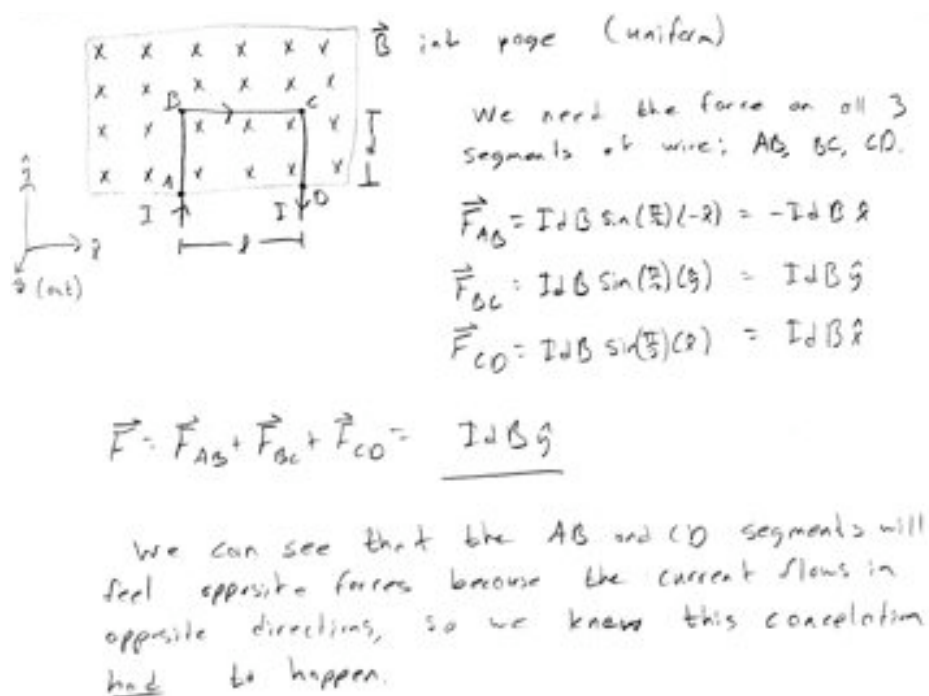 B⃗ into page (uniform)
x x x x x x
x x x x x x
B C
x x x x x x d
x x A x x x x
D
I I
ℓ
ŷ
x̂
ẑ (out)
We need the force on all 3
segments of wire: AB, BC, CD.
F⃗_AB = IdB sin(π/2)(-x̂) = -IdB x̂
F⃗_BC = IdB sin(π/2)(ŷ) = IdB ŷ
F⃗_CD = IdB sin(π/2)(x̂) = IdB x̂
F⃗ = F⃗_AB + F⃗_BC + F⃗_CD = IdB ŷ
We can see that the AB and CD segments will
feel opposite forces because the current flows in
opposite directions, so we knew this cancelation
had to happen.